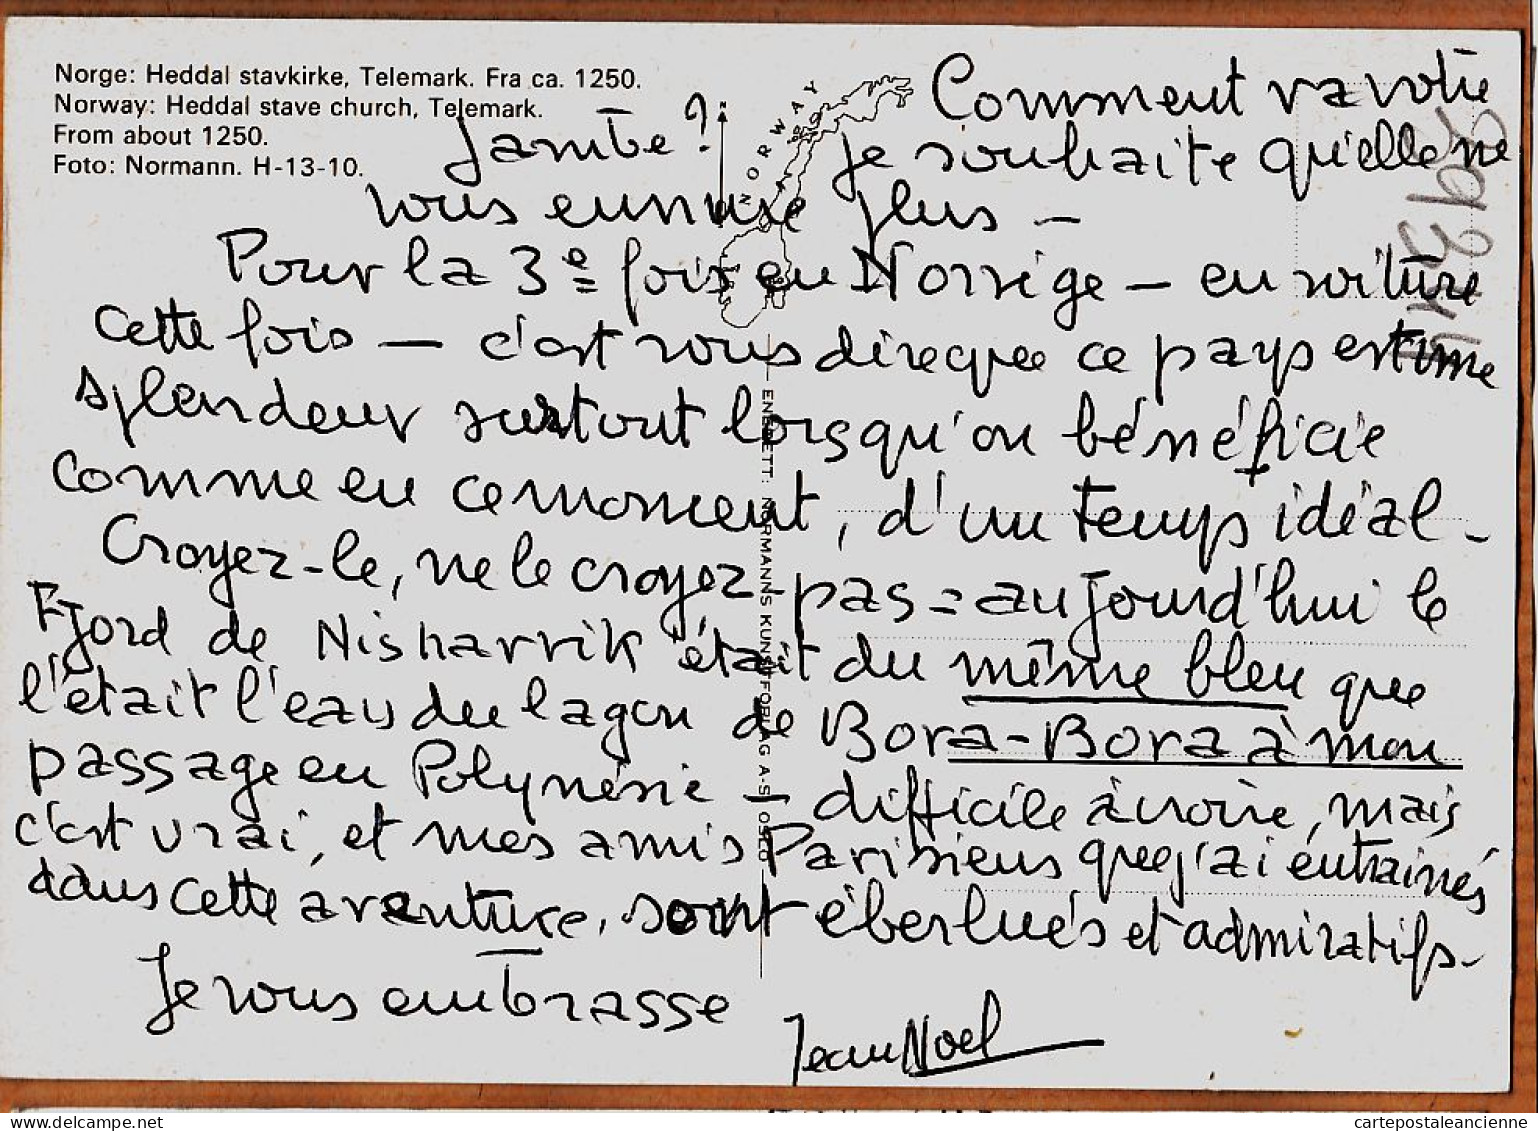 Norge: Heddal stavkirke, Telemark. Fra ca. 1250.
Norway: Heddal stave church, Telemark.
From about 1250.
Foto: Normann. H-13-10.
NORWAY
N
ENERETT: NORMANNS KUNSTFORLAG A-S OSLO
Comment va votre
jambe? Je souhaite qu'elle ne
vous ennuie plus -
Pour la 3e fois en Norvège - en voiture
cette fois - c'est vous dire que ce pays est une
splendeur surtout lorsqu'on bénéficie
comme en ce moment, d'un temps idéal -
Croyez-le, ne le croyez pas = aujourd'hui le
Fjord de Nisharvik était du même bleu que
l'était l'eau du lagon de Bora-Bora à mon
passage en Polynésie - difficile à croire, mais
c'est vrai, et mes amis Parisiens que j'ai entrainés
dans cette aventure, sont éberlués et admiratifs -
Je vous embrasse
Jean Noel
cartepostaleancienne
delcampe.net